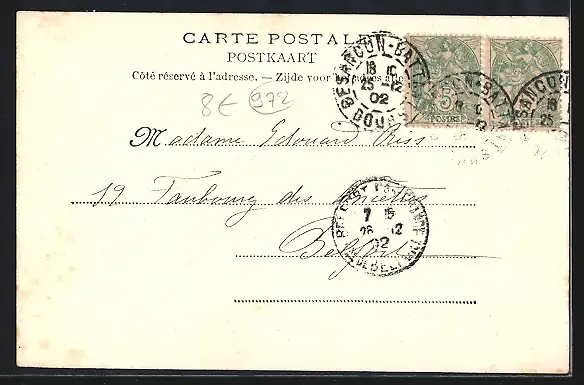 CARTE POSTALE
POSTKAART
Côté réservé à l'adresse. — Zijde voor het adres
8€ 972
BESANÇON-BATTANT
18 10
25 -12
02
DOUBS
5c
POSTES
Madame Edouard Riss
19 Faubourg des Ancêtres
Belfort
BELFORT
7 15
26 -12
02